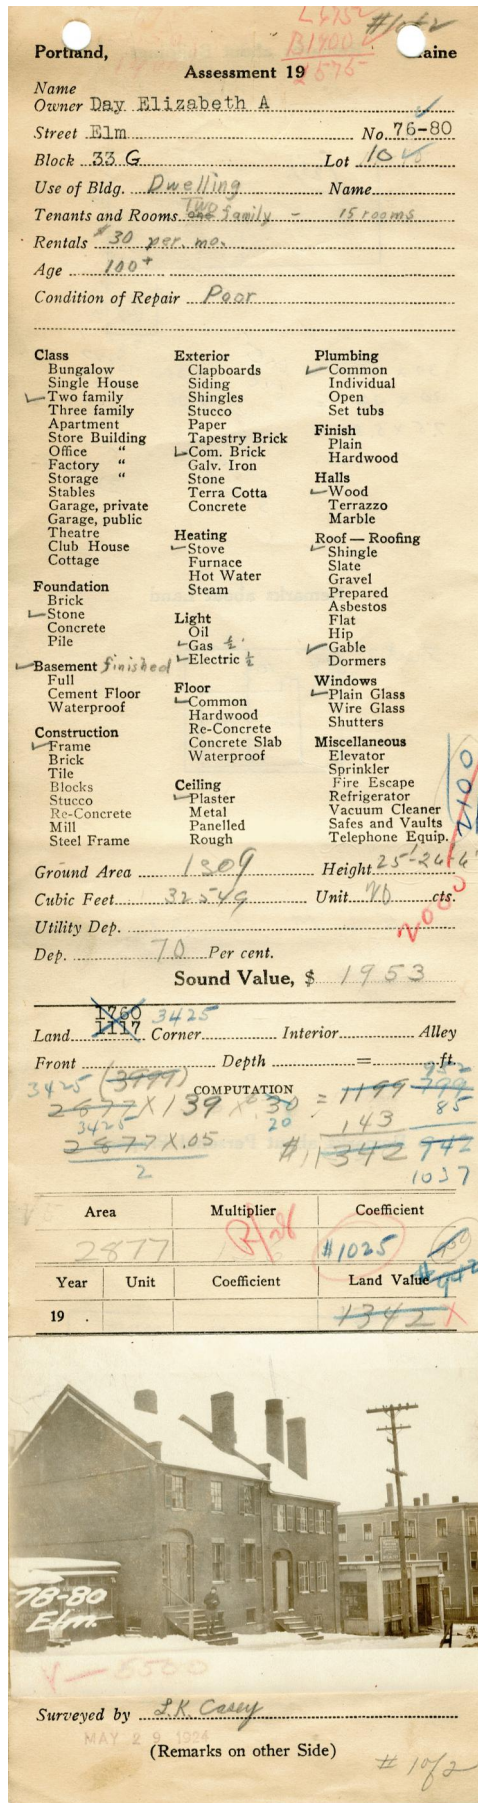 # 1 of 2
L 675
B 1900
2575
Portland, Maine
Assessment 19
Name
Owner Day Elizabeth A
Street Elm No. 76-80
Block 33 G Lot 10
Use of Bldg. Dwelling Name
Two
Tenants and Rooms one family - 15 rooms
Rentals $30 per. mo.
Age 100+
Condition of Repair Poor
Class
Bungalow
Single House
Two family
Three family
Apartment
Store Building
Office "
Factory "
Storage "
Stables
Garage, private
Garage, public
Theatre
Club House
Cottage
Foundation
Brick
Stone
Concrete
Pile
Basement finished
Full
Cement Floor
Waterproof
Construction
Frame
Brick
Tile
Blocks
Stucco
Re-Concrete
Mill
Steel Frame
Exterior
Clapboards
Siding
Shingles
Stucco
Paper
Tapestry Brick
Com. Brick
Galv. Iron
Stone
Terra Cotta
Concrete
Heating
Stove
Furnace
Hot Water
Steam
Light
Oil
Gas ½
Electric ½
Floor
Common
Hardwood
Re-Concrete
Concrete Slab
Waterproof
Ceiling
Plaster
Metal
Panelled
Rough
Plumbing
Common
Individual
Open
Set tubs
Finish
Plain
Hardwood
Halls
Wood
Terrazzo
Marble
Roof — Roofing
Shingle
Slate
Gravel
Prepared
Asbestos
Flat
Hip
Gable
Dormers
Windows
Plain Glass
Wire Glass
Shutters
Miscellaneous
Elevator
Sprinkler
Fire Escape
Refrigerator
Vacuum Cleaner
Safes and Vaults
Telephone Equip.
2100
Ground Area 1309 Height 25'-24'-6"
Cubic Feet 32549 Unit 20 cts.
2000
Utility Dep.
Dep. 70 Per cent.
Sound Value, $ 1953
1760 3425
Land 1117 Corner Interior Alley
Front Depth = ft.
3425 (3999) 952
COMPUTATION
2877 X 139 X .30 = 1199 799
3425 20 143 85
2877 X .05 # 1342 942
2 1037
Area Multiplier Coefficient
2877 $1025
Year Unit Coefficient Land Value $942
19 . 1342 X
78-80
Elm.
V - 5500
Surveyed by L.K. Casey
MAY 29 1924
(Remarks on other Side)
# 1 of 2